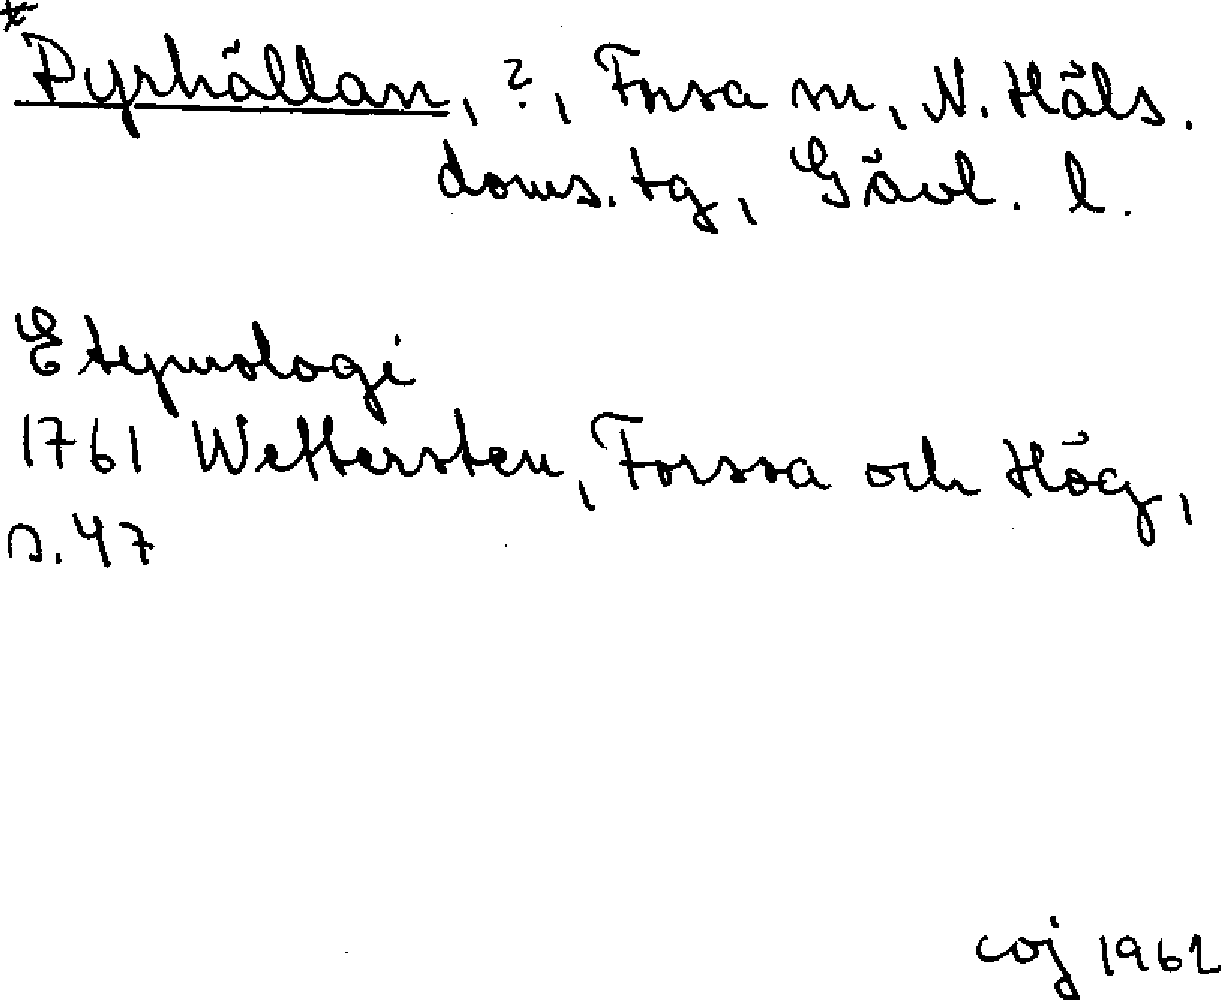 * Pyrhällan, ?, Forsa sn, N. Häls.
doms. tg, Gävl. l.
Etymologi
1761 Wettersten, Forssa och Hög,
s. 47
coj 1962